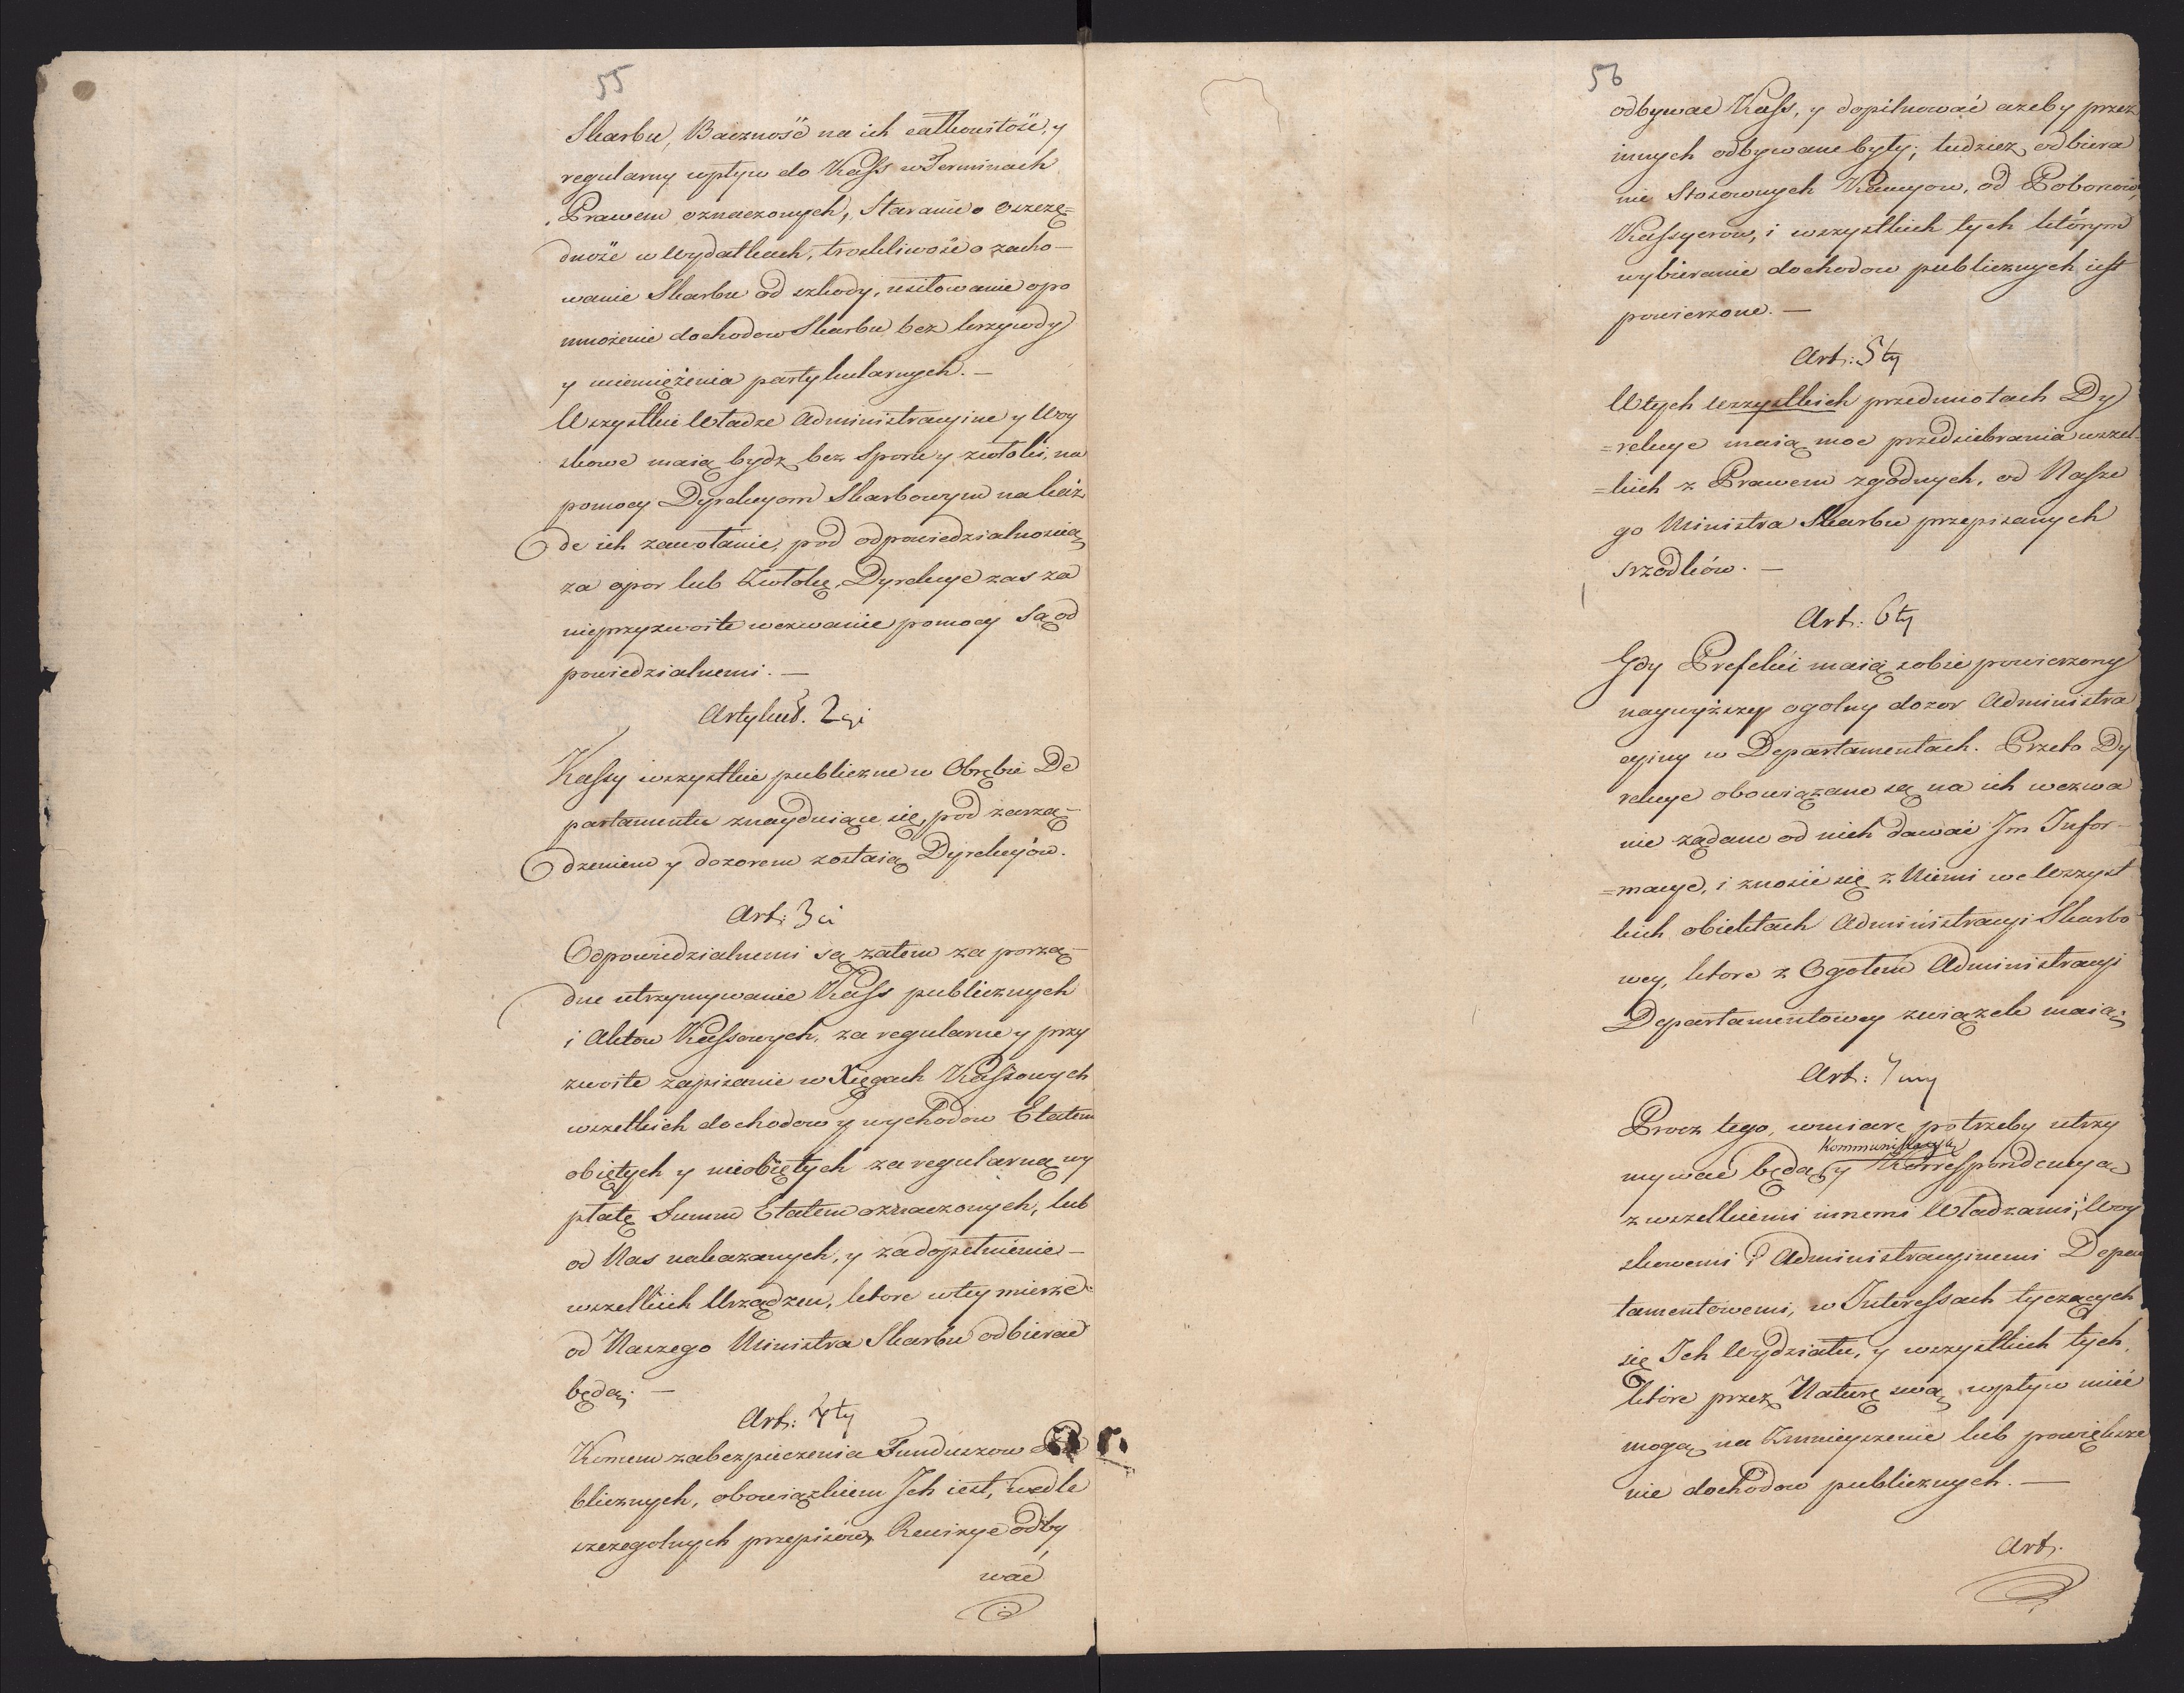 55
Skarbu, Baczność na ich całkowitość, y
regularny wpływ do Kass w Terminach
Prawem oznaczonych, Staranie o oszczę=
dność w wydatkach, troskliwość o zacho-
wanie Skarbu od szkody, usiłowanie o po
mnożenie dochodow Skarbu bez krzywdy
y uciemiężenia partykularnych. —
Wszystkie Władze Administracyine y Woy
skowe maią bydz bez Sporu y zwłoki, na
pomocy Dyrekcyom Skarbowym na każ
de ich zawołanie, pod odpowiedzialnością
za opor lub Zwłokę, Dyrekcye zas za
nieprzyzwoite wezwanie pomocy są od
powiedzialnemi. —
Artykuł. 2gi
Kassy wszystkie publiczne w Obrębie De
partamentu znayduiące się, pod zarzą-
dzeniem y dozorem zostaią Dyrekcyów.
Art: 3ci
Odpowiedzialnemi są zatem za porzą-
dne utrzymywanie Kass publicznych
i Aktow Kassowych, za regularne y przy
zwoite zapisanie w Xięgach Kassowych
wszelkich dochodow y wychodow Etatem
obiętych y nieobiętych za regularną wy
płatę Summ Etatem oznaczonych, lub
od Nas nakazanych, y za dopełnienie -
wszelkich Urządzeń, ktore w tey mierze
od Naszego Ministra Skarbu odbierać
będą. —
Art: 4ty
Końcem zabezpieczenia Funduszow
blicznych, obowiązkiem Ich iest, wedle
szczegolnych przepisów, Rewizye odby
wać
56
odbywać Kass, y dopilnować azeby przez
innych odbywane były; tudziez odbiera
nie Stosownych Kaucyow, od Poborców,
Kassyerow, i wszystkich tych którym
wybieranie dochodow publicznych iest
powierzone. —
Art: 5ty
W tych wszystkich przedmiotach Dy
=rekcye maią moc przedsiebrania wszel-
=kich z Prawem zgodnych, od Nasze
go Ministra Skarbu przepisanych
srzodków. —
Art: 6ty
Gdy Prefekci maią sobie powierzony
naywyższy ogolny dozor Administra
cyiny w Departamentach. Przeto Dy
rekcye obowiązane są na ich wezwa
nie ządane od nich dawać Im Infor-
=macye, i znosić się z Niemi we Wszyst
kich obiektach Administracyi Skarbo
wey, ktore z Ogołem Administracyi
Departamentowey związek maią.
Art: 7my
Procz tego, w miarę potrzeby utrzy
kommunikacyą
mywać będą y Korrespondencyą
z wszelkiemi innemi Władzami, Woy
skowemi i Administracyinemi Depar
tamentowemi, w Interessach tyczących
się Ich Wydziału, y wszystkich tych,
które przez Naturę swą wpływ mieć
mogą na Zmnieyszenie lub powiększe
nie dochodow publicznych. —
Art.